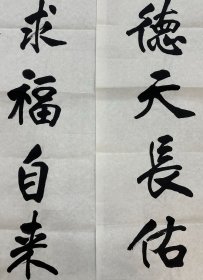 德天長佑
求福自来